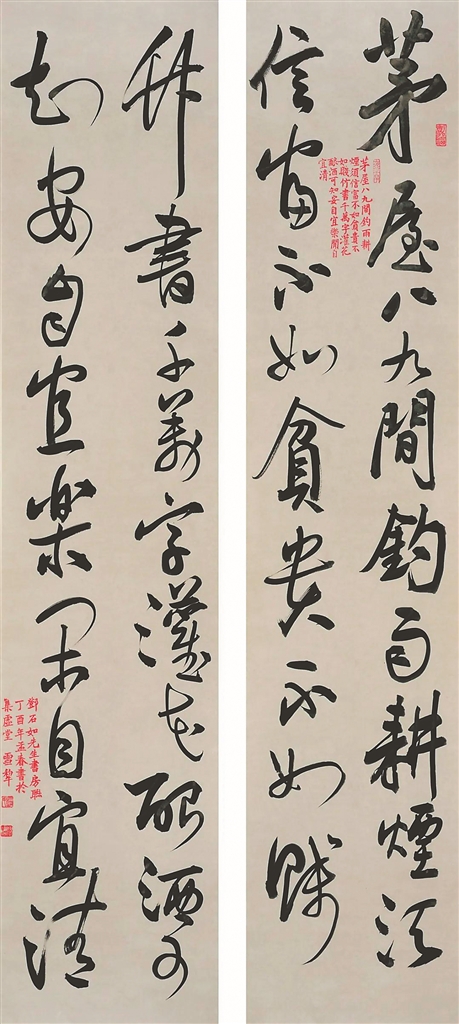 茅屋八九間釣雨耕煙須
信富不如貧貴不如賤
茅屋八九間釣雨耕
煙須信富不如貧貴不
如賤竹書千萬字灌花
釀酒可知安自宜樂閒自
宜清
竹書千萬字灌花釀酒可
知安自宜樂閒自宜清
鄧石如先生書房聯
丁酉年孟春書於
集虛堂 雪犂